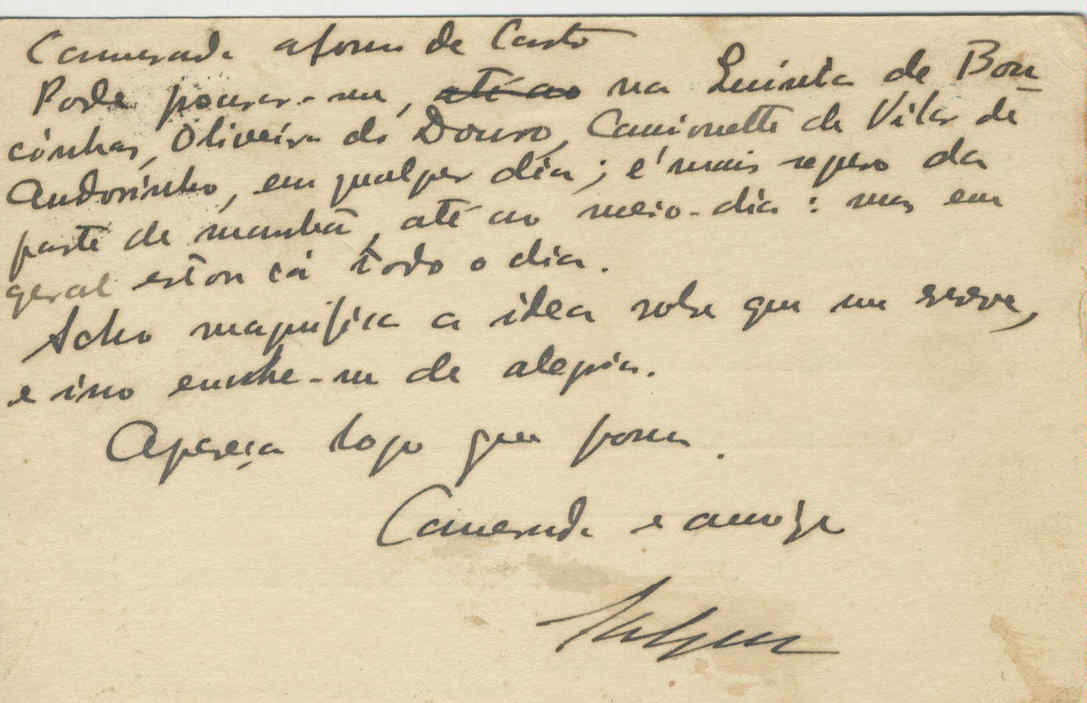 Camarada Afonso de Castro
Pode procurar-me, até ao na Quinta de Bou-
cinhas, Oliveira do Douro, Camionette de Vilar de
Andorinho, em qualquer dia; é mais seguro da
parte da manhã, até ao meio-dia: mas em
geral estou cá todo o dia.
Acho magnifica a idea sobre que me escreve,
e isso enche-me de alegria.
Apareça logo que possa.
Camarada e amigo